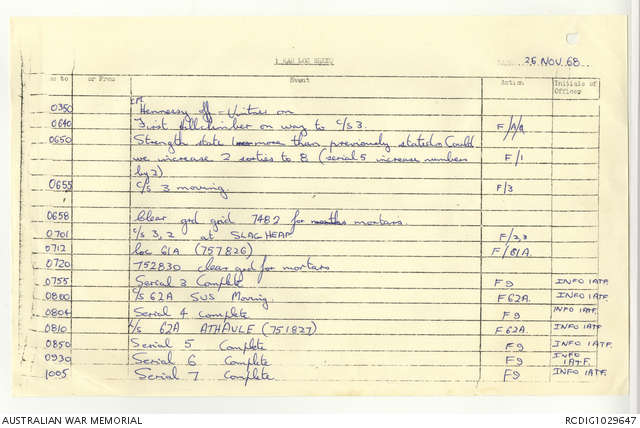 1 RAR LOG SHEET 26 NOV. 68
to or From Event Action Initials of
Officer
0350 Hennessy off - on
0640 First on way to C/S 3. F/A/Q
0650 Strength state more than previously stated. Could
we increase 2 sorties to 8 (serial 5 increase numbers F/1
by 2)
0655 C/S 3 moving. F/3
0658 Clear grd grid 7482 for mortars.
0701 C/S 3, 2 at SLAG HEAP F/2,3
0712 Loc 61A (757826) F/61A.
0720 752830 clear grd for mortars
0755 Serial 3 Complete F9 INFO 1ATF.
0800 C/S 62A SUS Moving. F62A. INFO 1ATF.
0804 Serial 4 complete F9 INFO 1ATF.
0810 C/S 62A (751827) F62A. INFO 1ATF.
0850 Serial 5 Complete F9 INFO 1ATF.
0930 Serial 6 Complete F9 INFO
1ATF.
1005 Serial 7 Complete F9 INFO 1ATF.
AUSTRALIAN WAR MEMORIAL RCDIG1029647